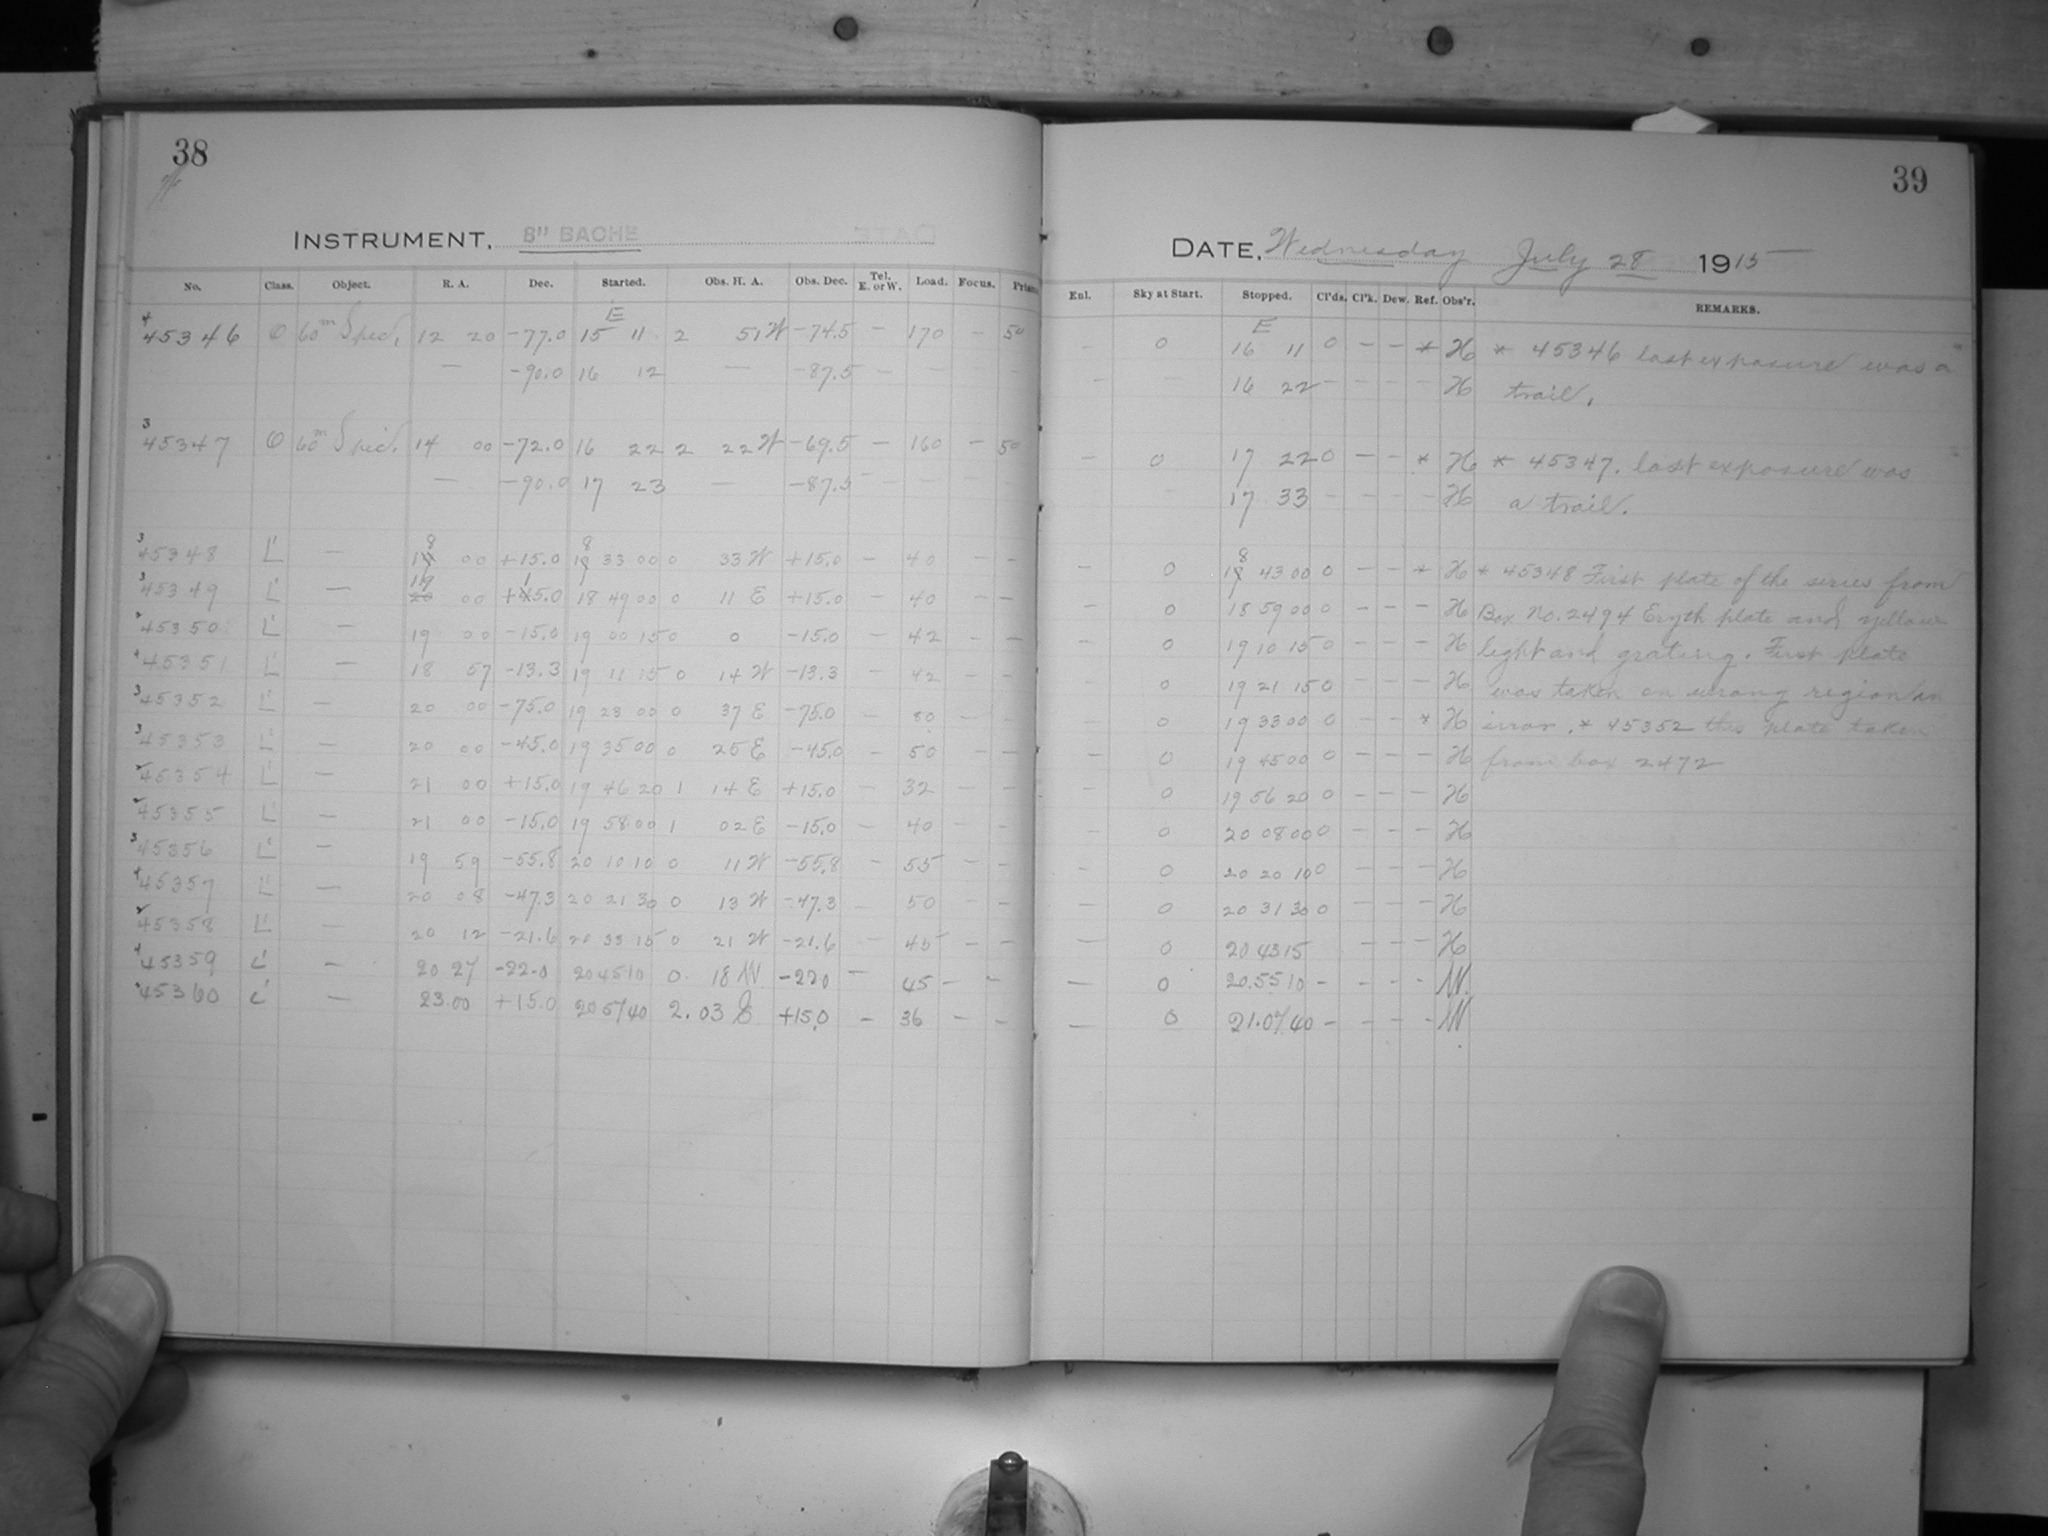 38
39
INSTRUMENT, 8" BACHE
DATE, Wednesday July 28 1915
No. Class. Object. R. A. Dec. Started. Obs. H. A. Obs. Dec. Tel. E. or W. Load. Focus. Prism
Enl. Sky at Start. Stopped. Cl'ds. Cl'k. Dew. Ref. Obs'r. REMARKS.
E
E
4 45346 O 60m Spec. 12 20 -77.0 15 11 2 51 W -74.5 - 170 - 50 - 0 16 11 0 - - * H * 45346 last exposure was a
- -90.0 16 12 - -87.5 - - - 16 22 - - - - H trail.
3 45347 O 60m Spec. 14 00 -72.0 16 22 2 22 W -69.5 - 160 - 50 - 0 17 22 0 - - * H * 45347. last exposure was
- -90.0 17 23 - -87.5 - - 17 33 - - - - H a trail.
3 45348 L' - 18 00 +15.0 18 33 00 0 33 W +15.0 - 40 - - - 0 18 43 00 0 - - * H * 45348 First plate of the series from
3 45349 L' - 19 00 +15.0 18 49 00 0 11 E +15.0 - 40 - - - 0 18 59 00 0 - - - H Box No. 2494 Eryth plate and yellow
45350 L' - 19 00 -15.0 19 00 15 0 0 -15.0 - 42 - - 0 19 10 15 0 - - - H light and grating. First plate
4 45351 L' - 18 57 -13.3 19 11 15 0 14 W -13.3 - 42 - - 0 19 21 15 0 - - - H was taken on wrong region in
3 45352 L' - 20 00 -75.0 19 23 00 0 37 E -75.0 - 80 - - 0 19 33 00 0 - - * H error. * 45352 this plate taken
3 45353 L' - 20 00 -45.0 19 35 00 0 25 E -45.0 - 50 - - - 0 19 45 00 0 - - - H from box 2472
45354 L' - 21 00 +15.0 19 46 20 1 14 E +15.0 - 32 - - - 0 19 56 20 0 - - - H
45355 L' - 21 00 -15.0 19 58 00 1 02 E -15.0 - 40 - - - 0 20 08 00 0 - - - H
3 45356 L' - 19 59 -55.8 20 10 10 0 11 W -55.8 - 55 - - - 0 20 20 10 0 - - - H
4 45357 L' - 20 08 -47.3 20 21 30 0 13 W -47.3 - 50 - - - 0 20 31 30 0 - - - H
45358 L' - 20 12 -21.6 20 33 15 0 21 W -21.6 - 45 - - - 0 20 43 15 - - - H
4 45359 L' - 20 27 -22.0 20 45 10 0. 18 W -22.0 - 45 - - - 0 20.55 10 - - - - W.
45360 L' - 23.00 +15.0 20 57 40 2. 03 E +15.0 - 36 - - - 0 21.07.40 - - - - W